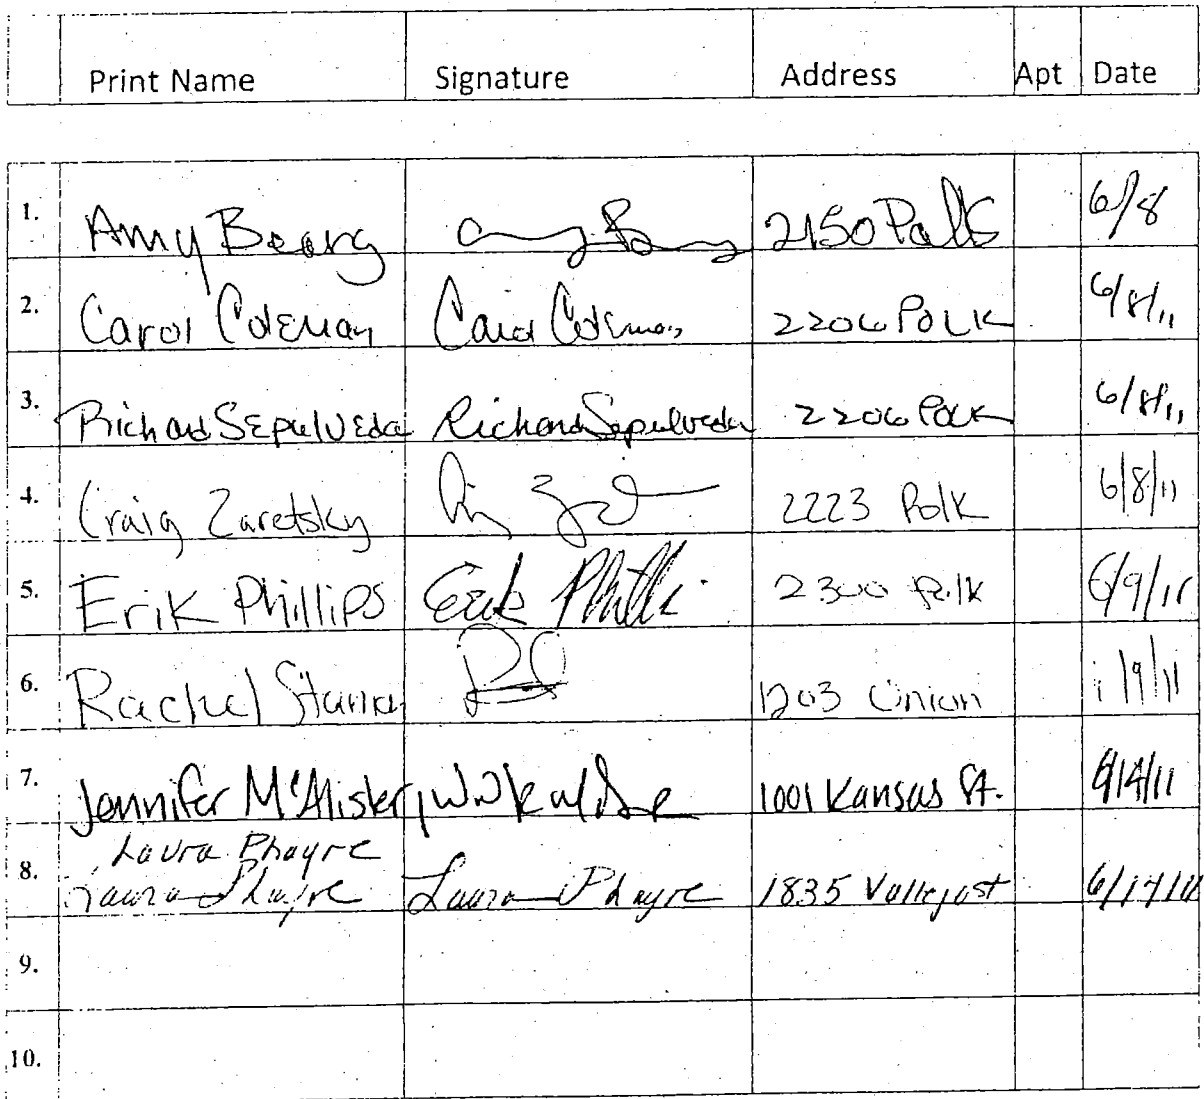 Print Name Signature Address Apt Date
1. Amy Bearg 2150 Polk 6/8
2. Carol Coleman Carol Coleman 2206 POLK 6/8/11
3. Richard Sepulveda Richard Sepulveda 2206 Polk 6/8/11
4. Craig Zaretsky 2223 Polk 6/8/11
5. Erik Phillips Erik Philli 2300 Polk 6/9/11
6. Rachel 1203 Union /9/11
7. Jennifer McAlister 1001 Kansas St. 6/14/11
Laura Phayre
8. Laura Phayre Laura Phayre 1835 Vallejo st 6/17/11
9.
10.